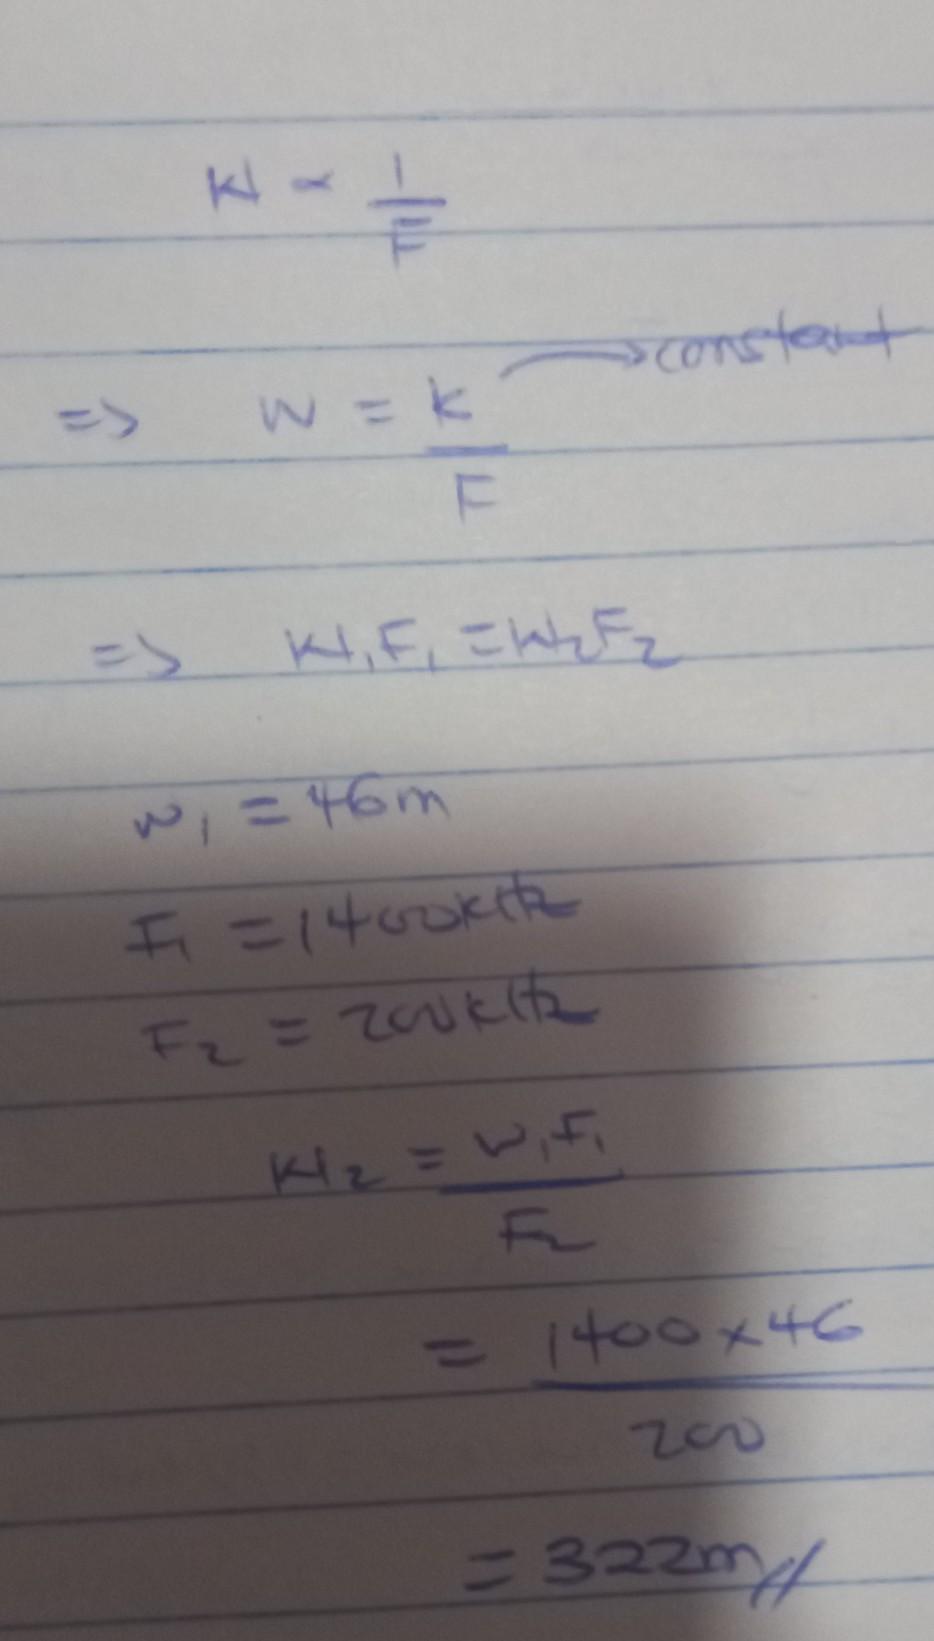 W ∝ 1/F
constant
=> W = K/F
=> W₁F₁ = W₂F₂
W₁ = 46m
F₁ = 1400KHz
F₂ = 200KHz
W₂ = W₁F₁/F₂
= 1400 x 46/200
= 322m//